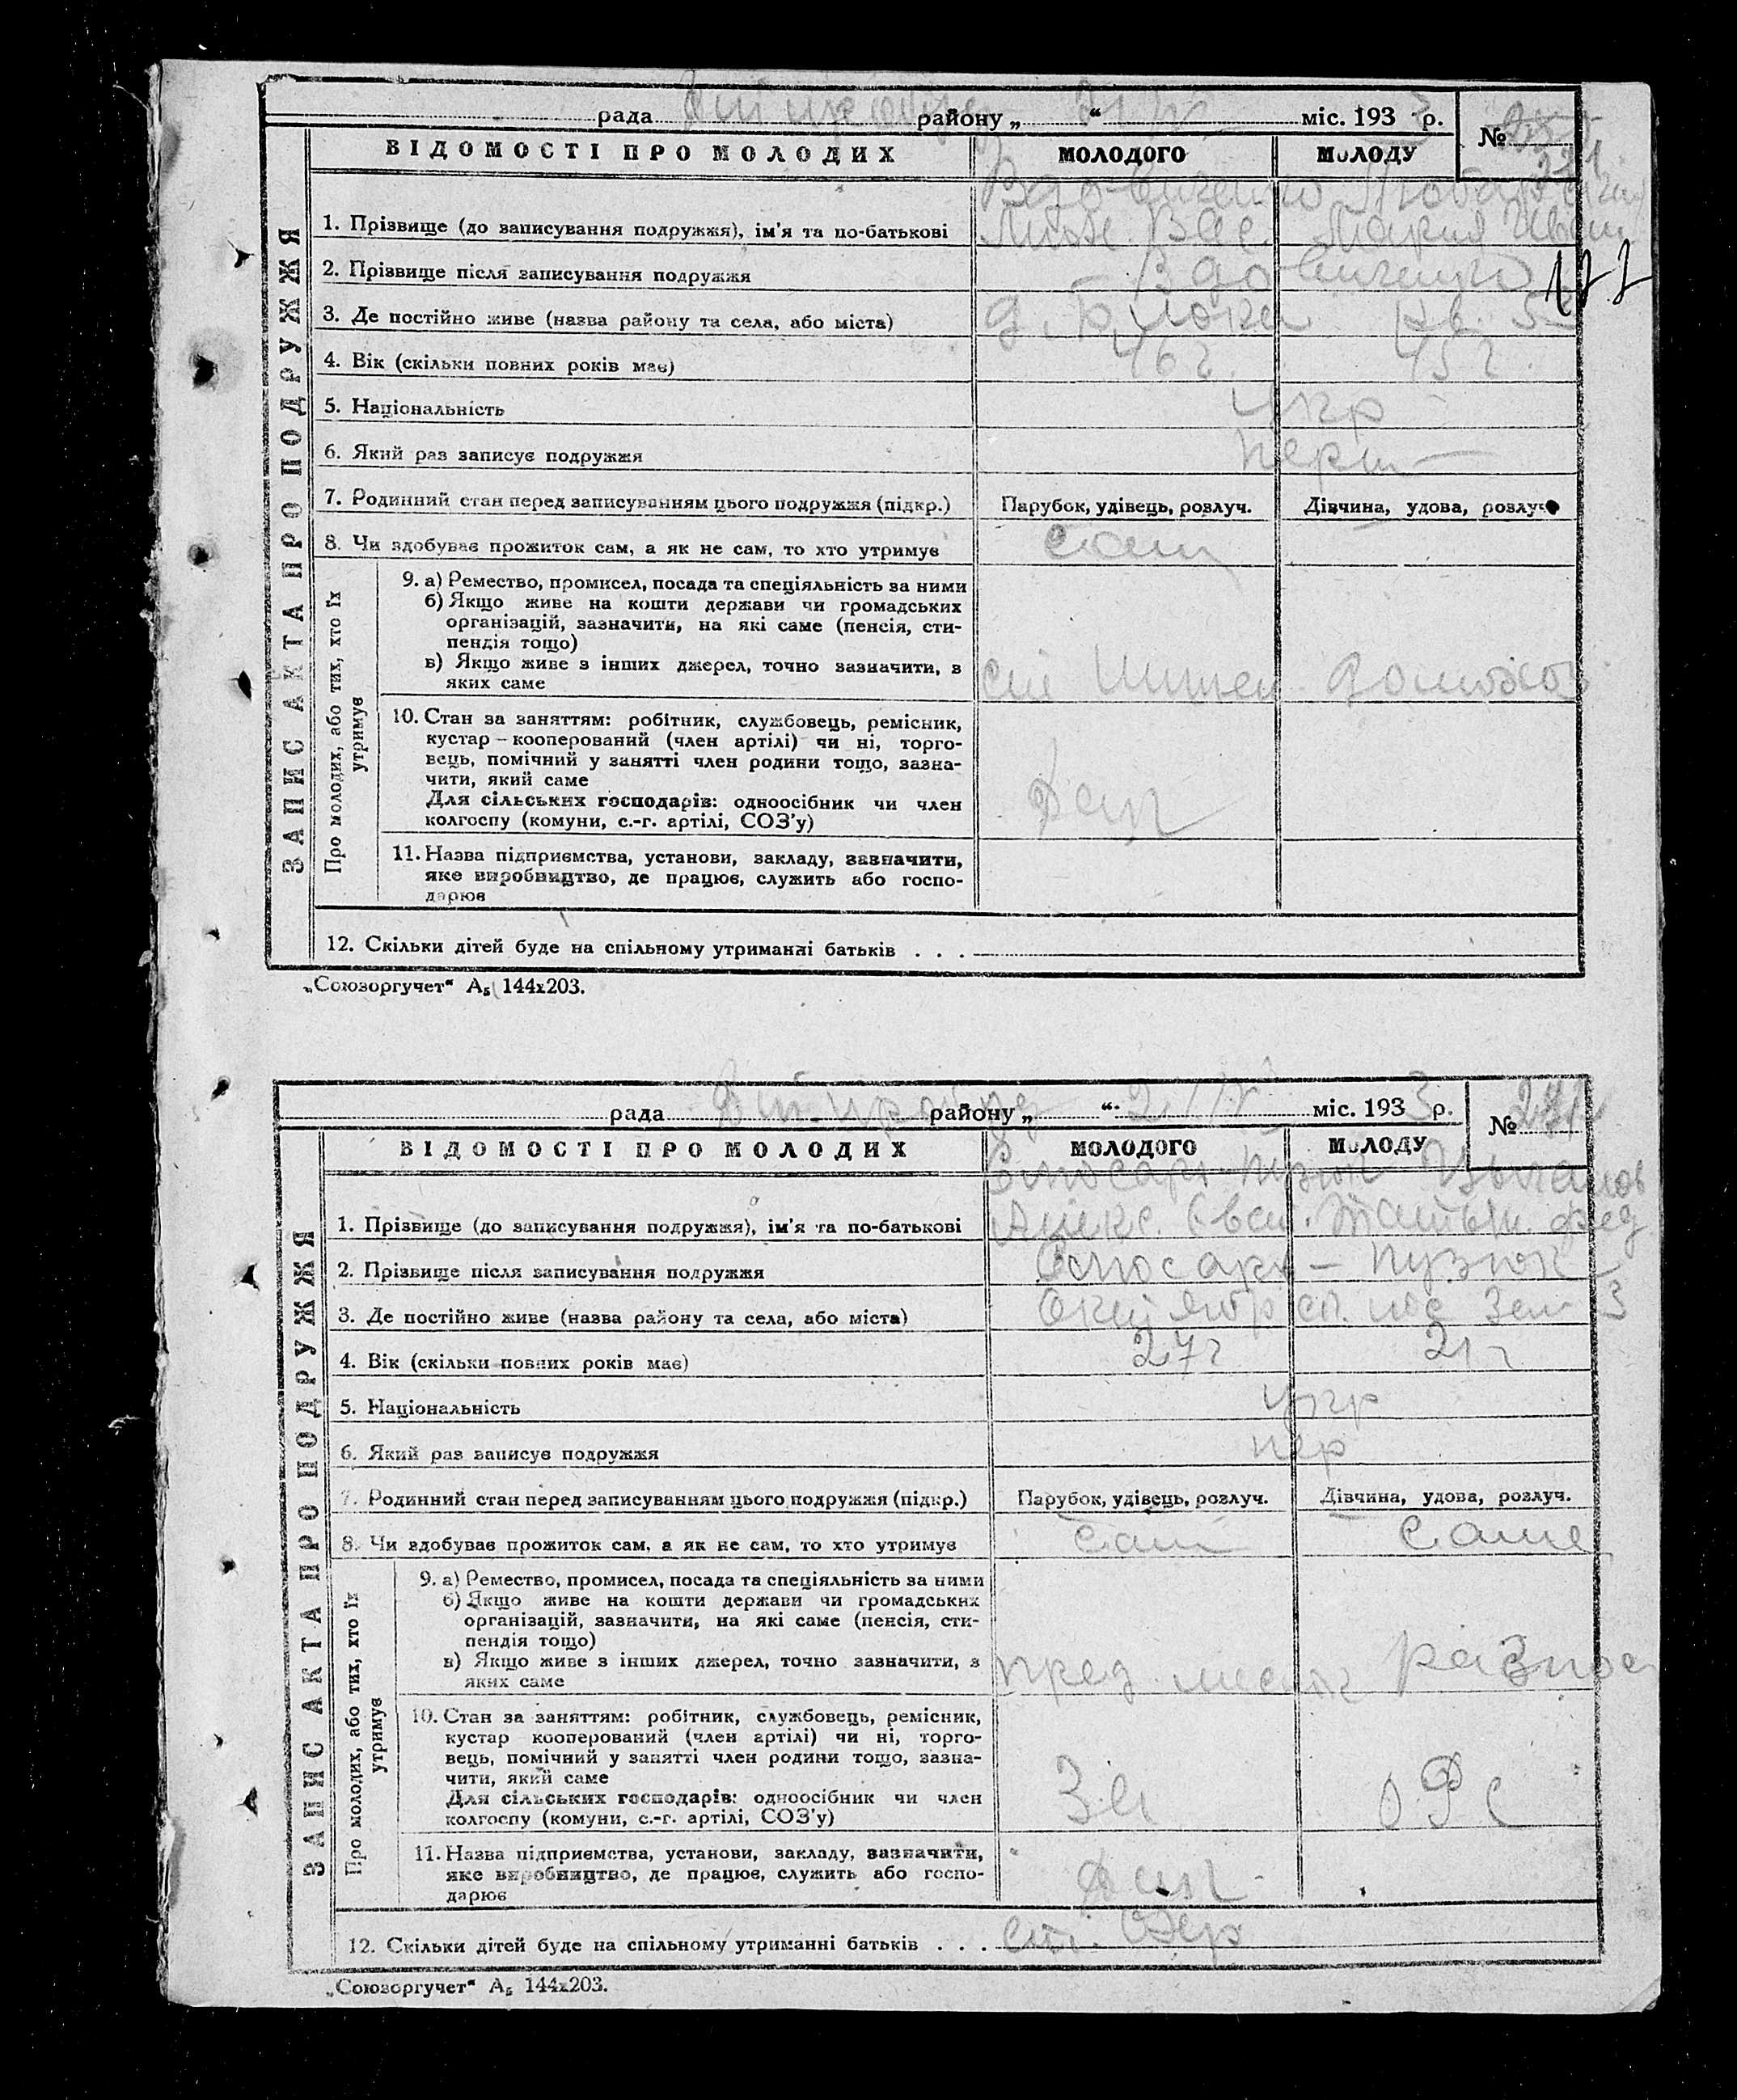 рада району „ “ міс. 193 3 р. №
ВІДОМОСТІ ПРО МОЛОДИХ МОЛОДОГО МОЛОДУ
ЗАПИС АКТА ПРО ПОДРУЖЖЯ
1. Прізвище (до записування подружжя), ім'я та по-батькові
Вдовиченко
Мария
2. Прізвище після записування подружжя Вдовиченко
177
3. Де постійно живе (назва району та села, або міста) кв. 5
4. Вік (скільки повних років має) 46 г. 45 г.
5. Національність укр
6. Який раз записує подружжя перш
7. Родинний стан перед записуванням цього подружжя (підкр.) Парубок, удівець, розлуч. Дівчина, удова, розлуч.
8. Чи здобуває прожиток сам, а як не сам, то хто утримує сам
Про молодих, або тих, хто їх утримує
9. а) Ремество, промисел, посада та спеціяльність за ними
б) Якщо живе на кошти держави чи громадських
організацій, зазначити, на які саме (пенсія, сти-
пендія тощо)
в) Якщо живе з інших джерел, точно зазначити, з
яких саме домохоз
10. Стан за заняттям: робітник, службовець, ремісник,
кустар – кооперований (член артілі) чи ні, торго-
вець, помічний у занятті член родини тощо, зазна-
чити, який саме
Для сільських господарів: одноосібник чи член
колгоспу (комуни, с.-г. артілі, СОЗ'у)
11. Назва підприємства, установи, закладу, зазначити,
яке виробництво, де працює, служить або госпо-
дарює
12. Скільки дітей буде на спільному утриманні батьків . . .
„Союзоргучет“ А₅ 144х203.
рада району „ “ міс. 193 3 р. №
ВІДОМОСТІ ПРО МОЛОДИХ МОЛОДОГО МОЛОДУ
ЗАПИС АКТА ПРО ПОДРУЖЖЯ
1. Прізвище (до записування подружжя), ім'я та по-батькові
2. Прізвище після записування подружжя Пузнюк
3. Де постійно живе (назва району та села, або міста)
4. Вік (скільки повних років має) 27 г 21 г
5. Національність укр
6. Який раз записує подружжя пер
7. Родинний стан перед записуванням цього подружжя (підкр.) Парубок, удівець, розлуч. Дівчина, удова, розлуч.
8. Чи здобуває прожиток сам, а як не сам, то хто утримує сам сама
Про молодих, або тих, хто їх утримує
9. а) Ремество, промисел, посада та спеціяльність за ними
б) Якщо живе на кошти держави чи громадських
організацій, зазначити, на які саме (пенсія, сти-
пендія тощо)
в) Якщо живе з інших джерел, точно зазначити, з
яких саме пред.
10. Стан за заняттям: робітник, службовець, ремісник,
кустар кооперований (член артілі) чи ні, торго-
вець, помічний у занятті член родини тощо, зазна-
чити, який саме
Для сільських господарів: одноосібник чи член
колгоспу (комуни, с.-г. артілі, СОЗ'у)
11. Назва підприємства, установи, закладу, зазначити,
яке виробництво, де працює, служить або госпо-
дарює
12. Скільки дітей буде на спільному утриманні батьків . . .
„Союзоргучет“ А₅ 144х203.